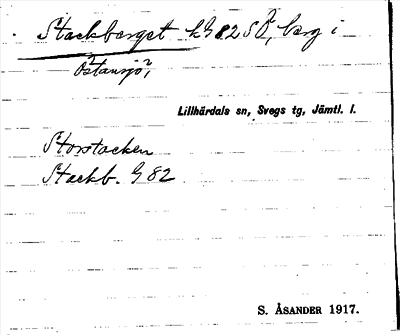 Stackberget kG82SÖ, berg i
Östansjö,
Lillhärdals sn, Svegs tg, Jämtl. l.
Storstacken
Stackb. G82
S. ÅSANDER 1917.